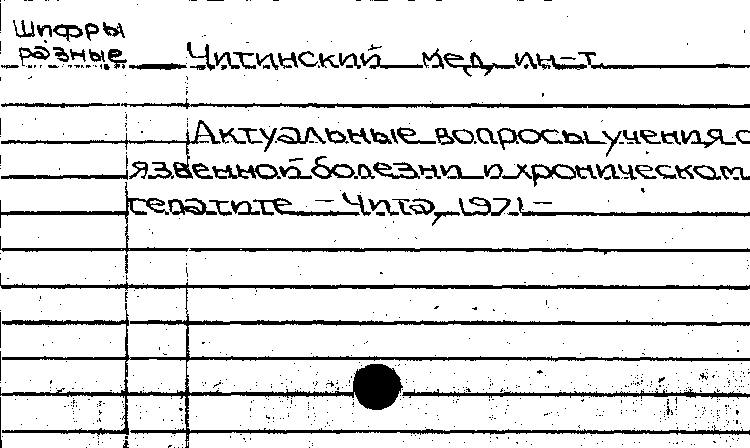 Шифры
разные
Читинский мед. ин-т.
Актуальные вопросы учения о
язвенной болезни и хроническом
гепатите. - Чита, 1971.-